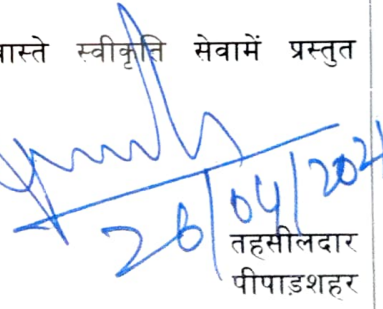 वास्ते स्वीकृति सेवामें प्रस्तुत
26/04/2021
तहसीलदार
पीपाड़शहर